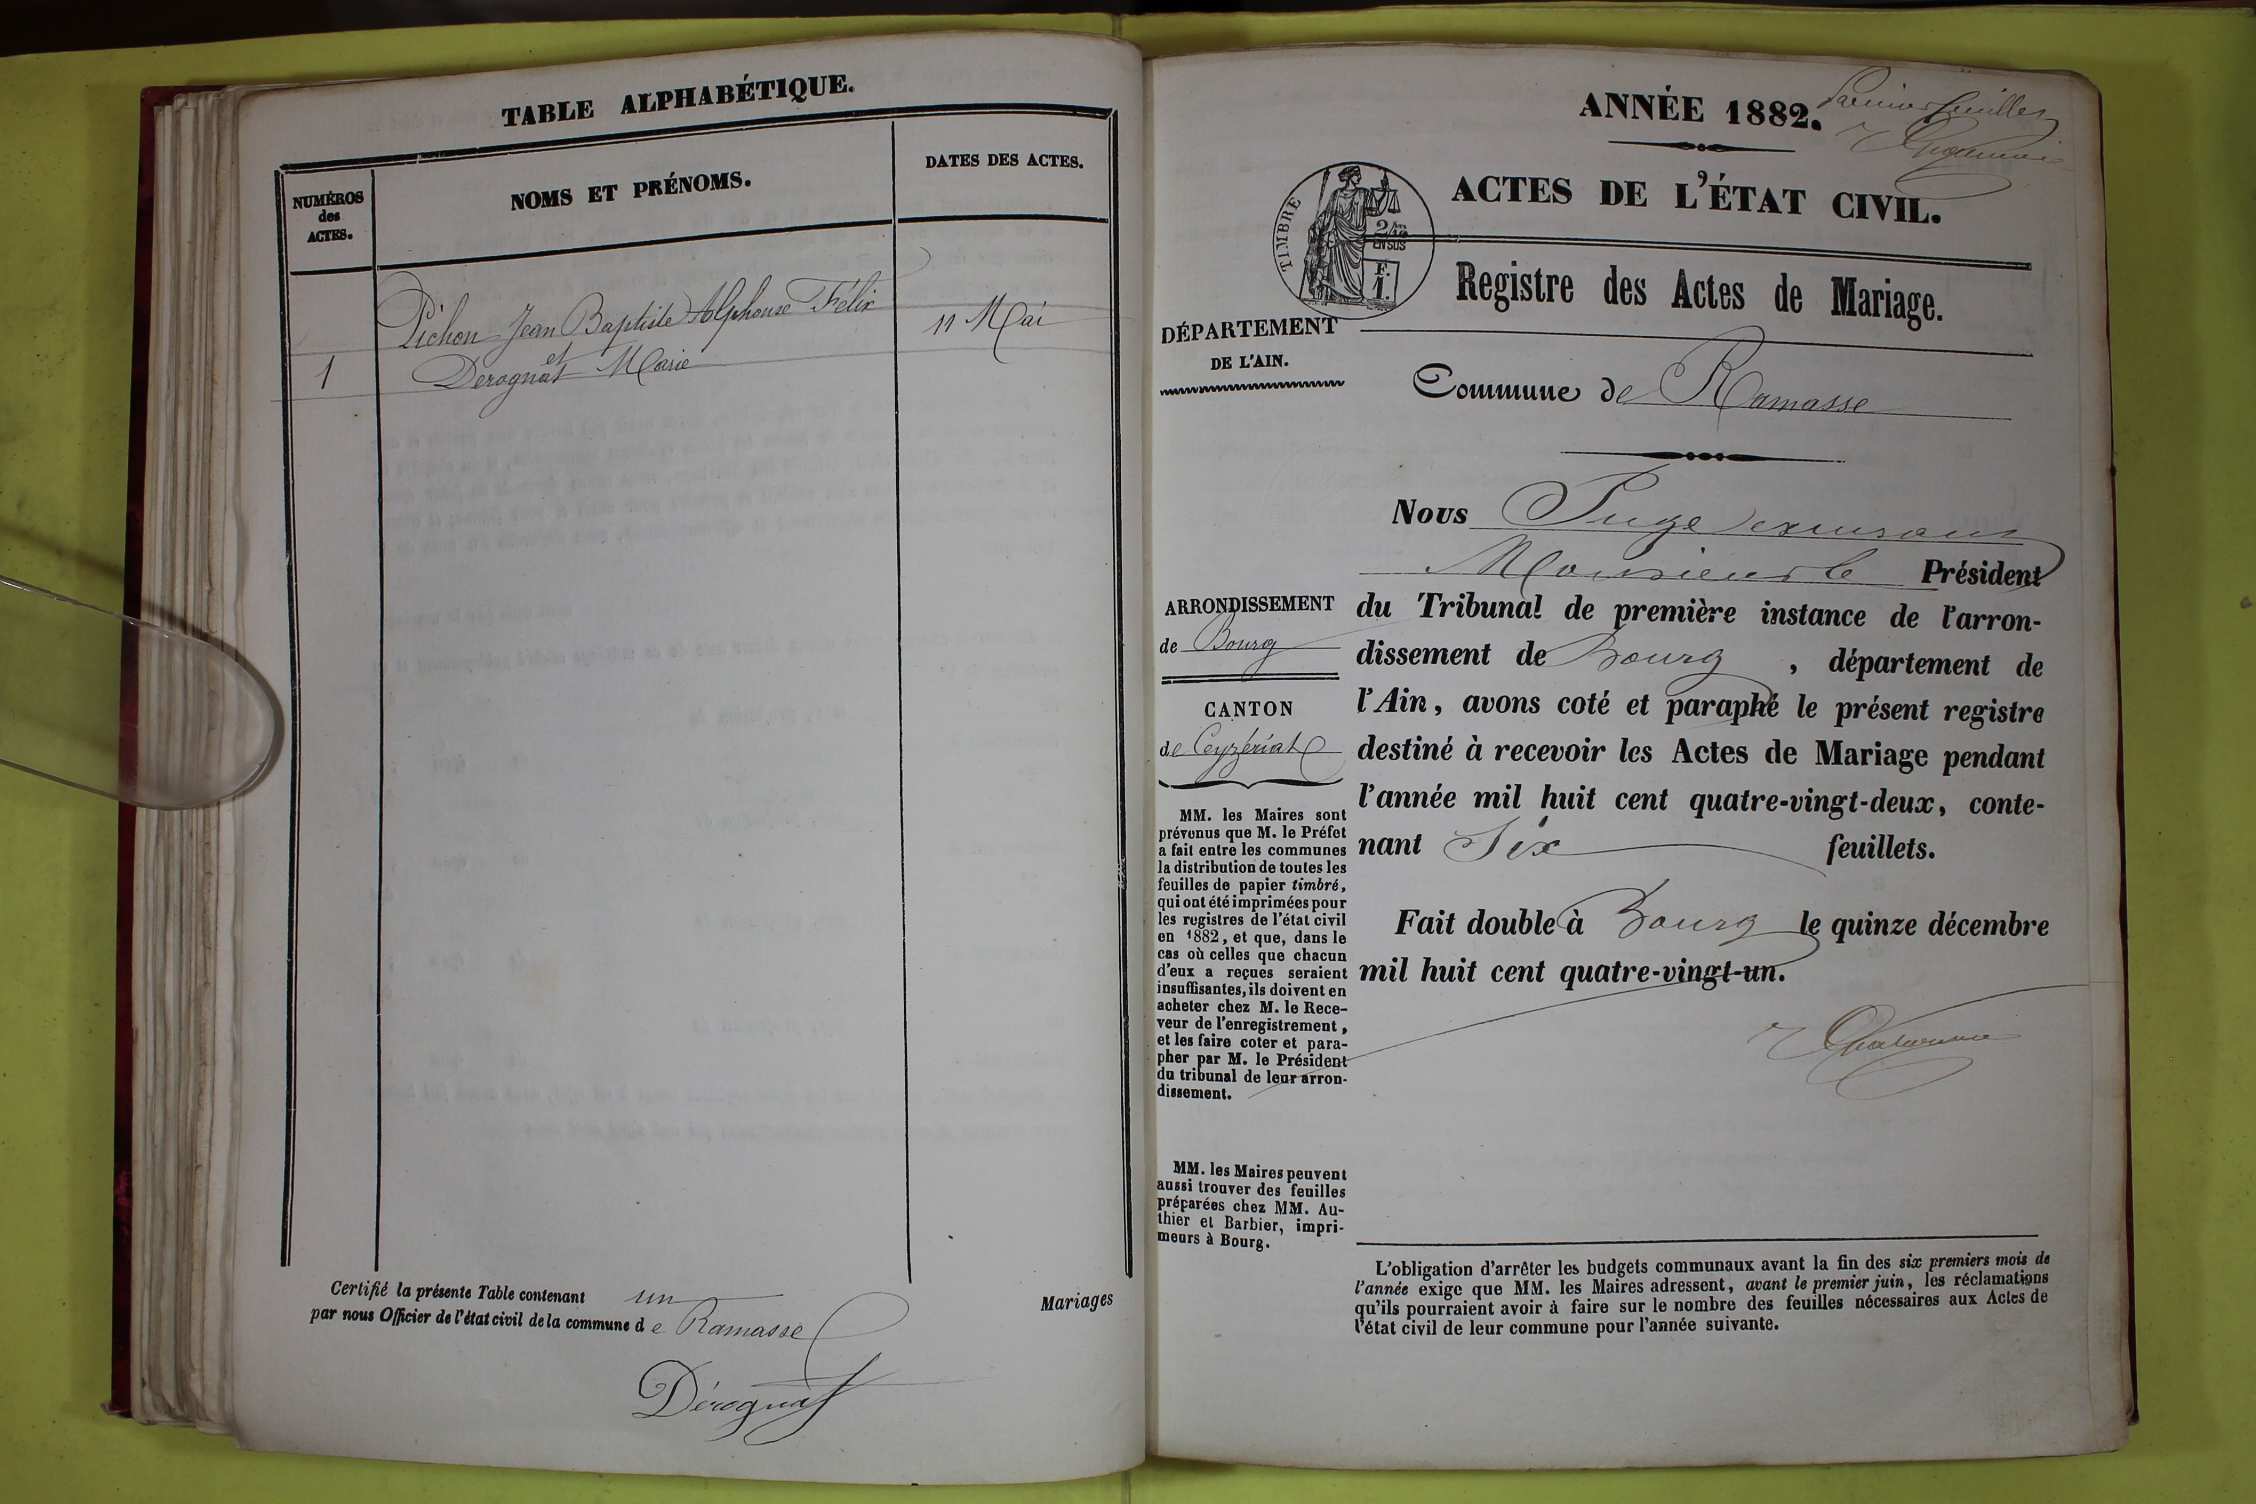 TABLE ALPHABÉTIQUE.
NUMÉROS
des
ACTES.
NOMS ET PRÉNOMS.
DATES DES ACTES.
Pichon Jean Baptiste Alphonse Félix
11 Mai
et
1
Derognat Marie
Certifié la présente Table contenant un Mariages
par nous Officier de l'état civil de la commune de Ramasse
Dérognat
ANNÉE 1882.
Premier feuillet
ACTES DE L'ÉTAT CIVIL.
TIMBRE
2/10
EN SUS
F.
1.
Registre des Actes de Mariage.
DÉPARTEMENT
DE L'AIN.
Commune de Ramasse
ARRONDISSEMENT
de Bourg
CANTON
de Ceyzériat
MM. les Maires sont
prévenus que M. le Préfet
a fait entre les communes
la distribution de toutes les
feuilles de papier timbré,
qui ont été imprimées pour
les registres de l'état civil
en 1882, et que, dans le
cas où celles que chacun
d'eux a reçues seraient
insuffisantes, ils doivent en
acheter chez M. le Rece-
veur de l'enregistrement,
et les faire coter et para-
pher par M. le Président
du tribunal de leur arron-
dissement.
MM. les Maires peuvent
aussi trouver des feuilles
préparées chez MM. Au-
thier et Barbier, impri-
meurs à Bourg.
Nous Juge
Monsieur le Président
du Tribunal de première instance de l'arron-
dissement de Bourg, département de
l'Ain, avons coté et paraphé le présent registre
destiné à recevoir les Actes de Mariage pendant
l'année mil huit cent quatre-vingt-deux, conte-
nant Six feuillets.
Fait double à Bourg le quinze décembre
mil huit cent quatre-vingt-un.
L'obligation d'arrêter les budgets communaux avant la fin des six premiers mois de
l'année exige que MM. les Maires adressent, avant le premier juin, les réclamations
qu'ils pourraient avoir à faire sur le nombre des feuilles nécessaires aux Actes de
l'état civil de leur commune pour l'année suivante.